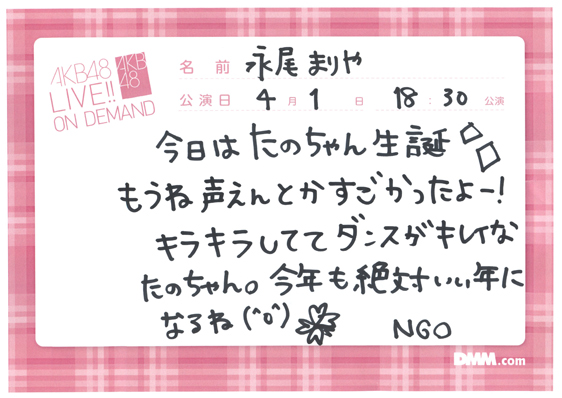 AKB48
LIVE!!
ON DEMAND
AKB
48
名前 永尾まりや
公演日 4月1日 18:30公演
今日はたのちゃん生誕
もうね声えんとかすごかったよー!
キラキラしててダンスがキレイな
たのちゃん。今年も絶対いい年に
なるね(^o^)
NGO
DMM.com